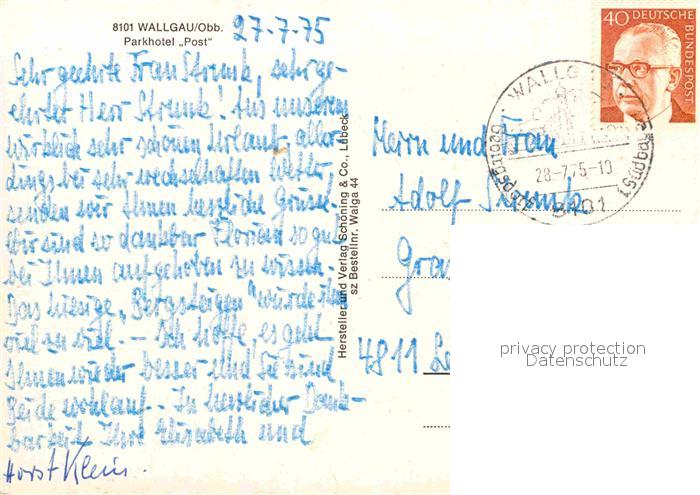 8101 WALLGAU/Obb.
Parkhotel „Post"
27-7-75
Sehr geehrte Frau Strunk, sehr ge-
ehrter Herr Strunk! Aus unserem
wirklich sehr schönen Urlaub, aller
dings bei sehr wechselhaften Wetter,
senden wir Ihnen herzliche Grüsse.
Wir sind so dankbar Florian so gut
bei Ihnen aufgehoben zu wissen.
Das hiesige „Bergsteigen" würde ihm
viel zu viel. — Ich hoffe, es geht
Ihnen wieder besser und Sie sind
Beide wohlauf. - In herzlicher Dank-
barkeit Ihre Elisabeth und
Horst Klein.
Hersteller und Verlag Schöning & Co., Lübeck
sz Bestellnr. Walga 44
40 DEUTSCHE
BUNDESPOST
WALLG
28-7.75-10
8101
Herrn und Frau
Adolf Strunk
Gra
4811 Le
privacy protection
Datenschutz